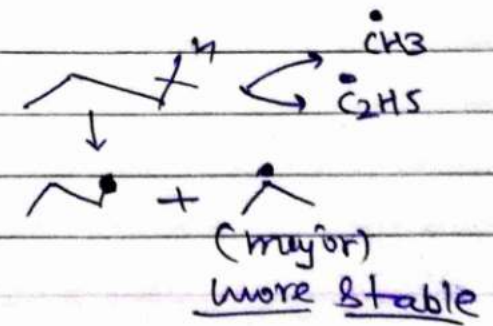 ĊH3
H
Ċ2H5
+
(major)
more stable